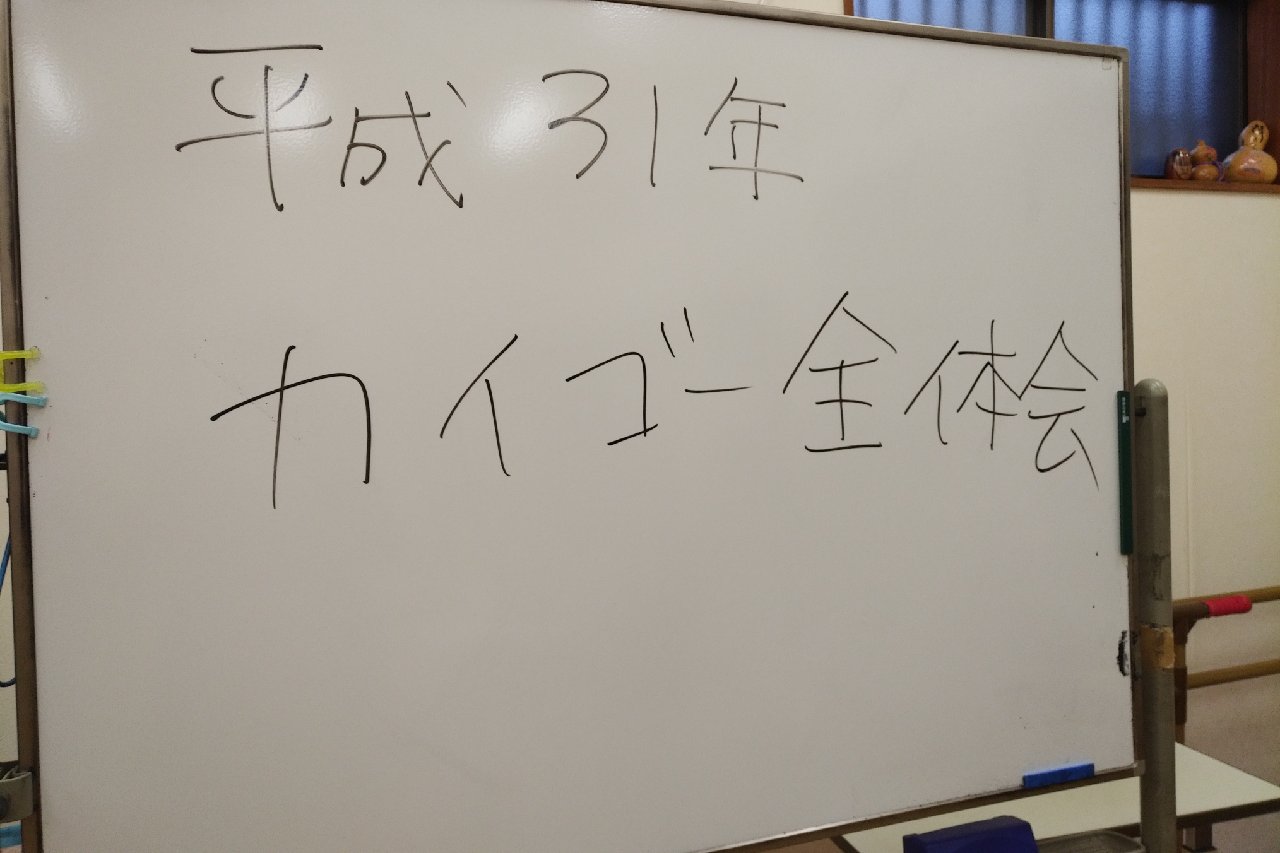 平成31年
カイゴー全体会